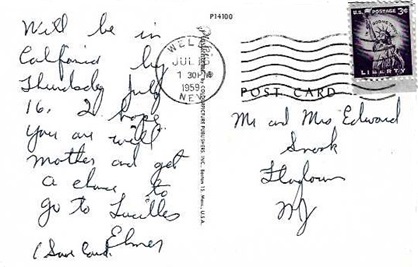 P14100
Will be in
California by
Thursday July
16. I hope
you are well
mother and get
a chance to
go to Lucilles
Elmer
WELLS
JUL
1 30 PM
1959
NEV
U.S. POSTAGE 3¢
LIBERTY
POST CARD
Mr and Mrs Edward
Snook
Flagtown
NJ